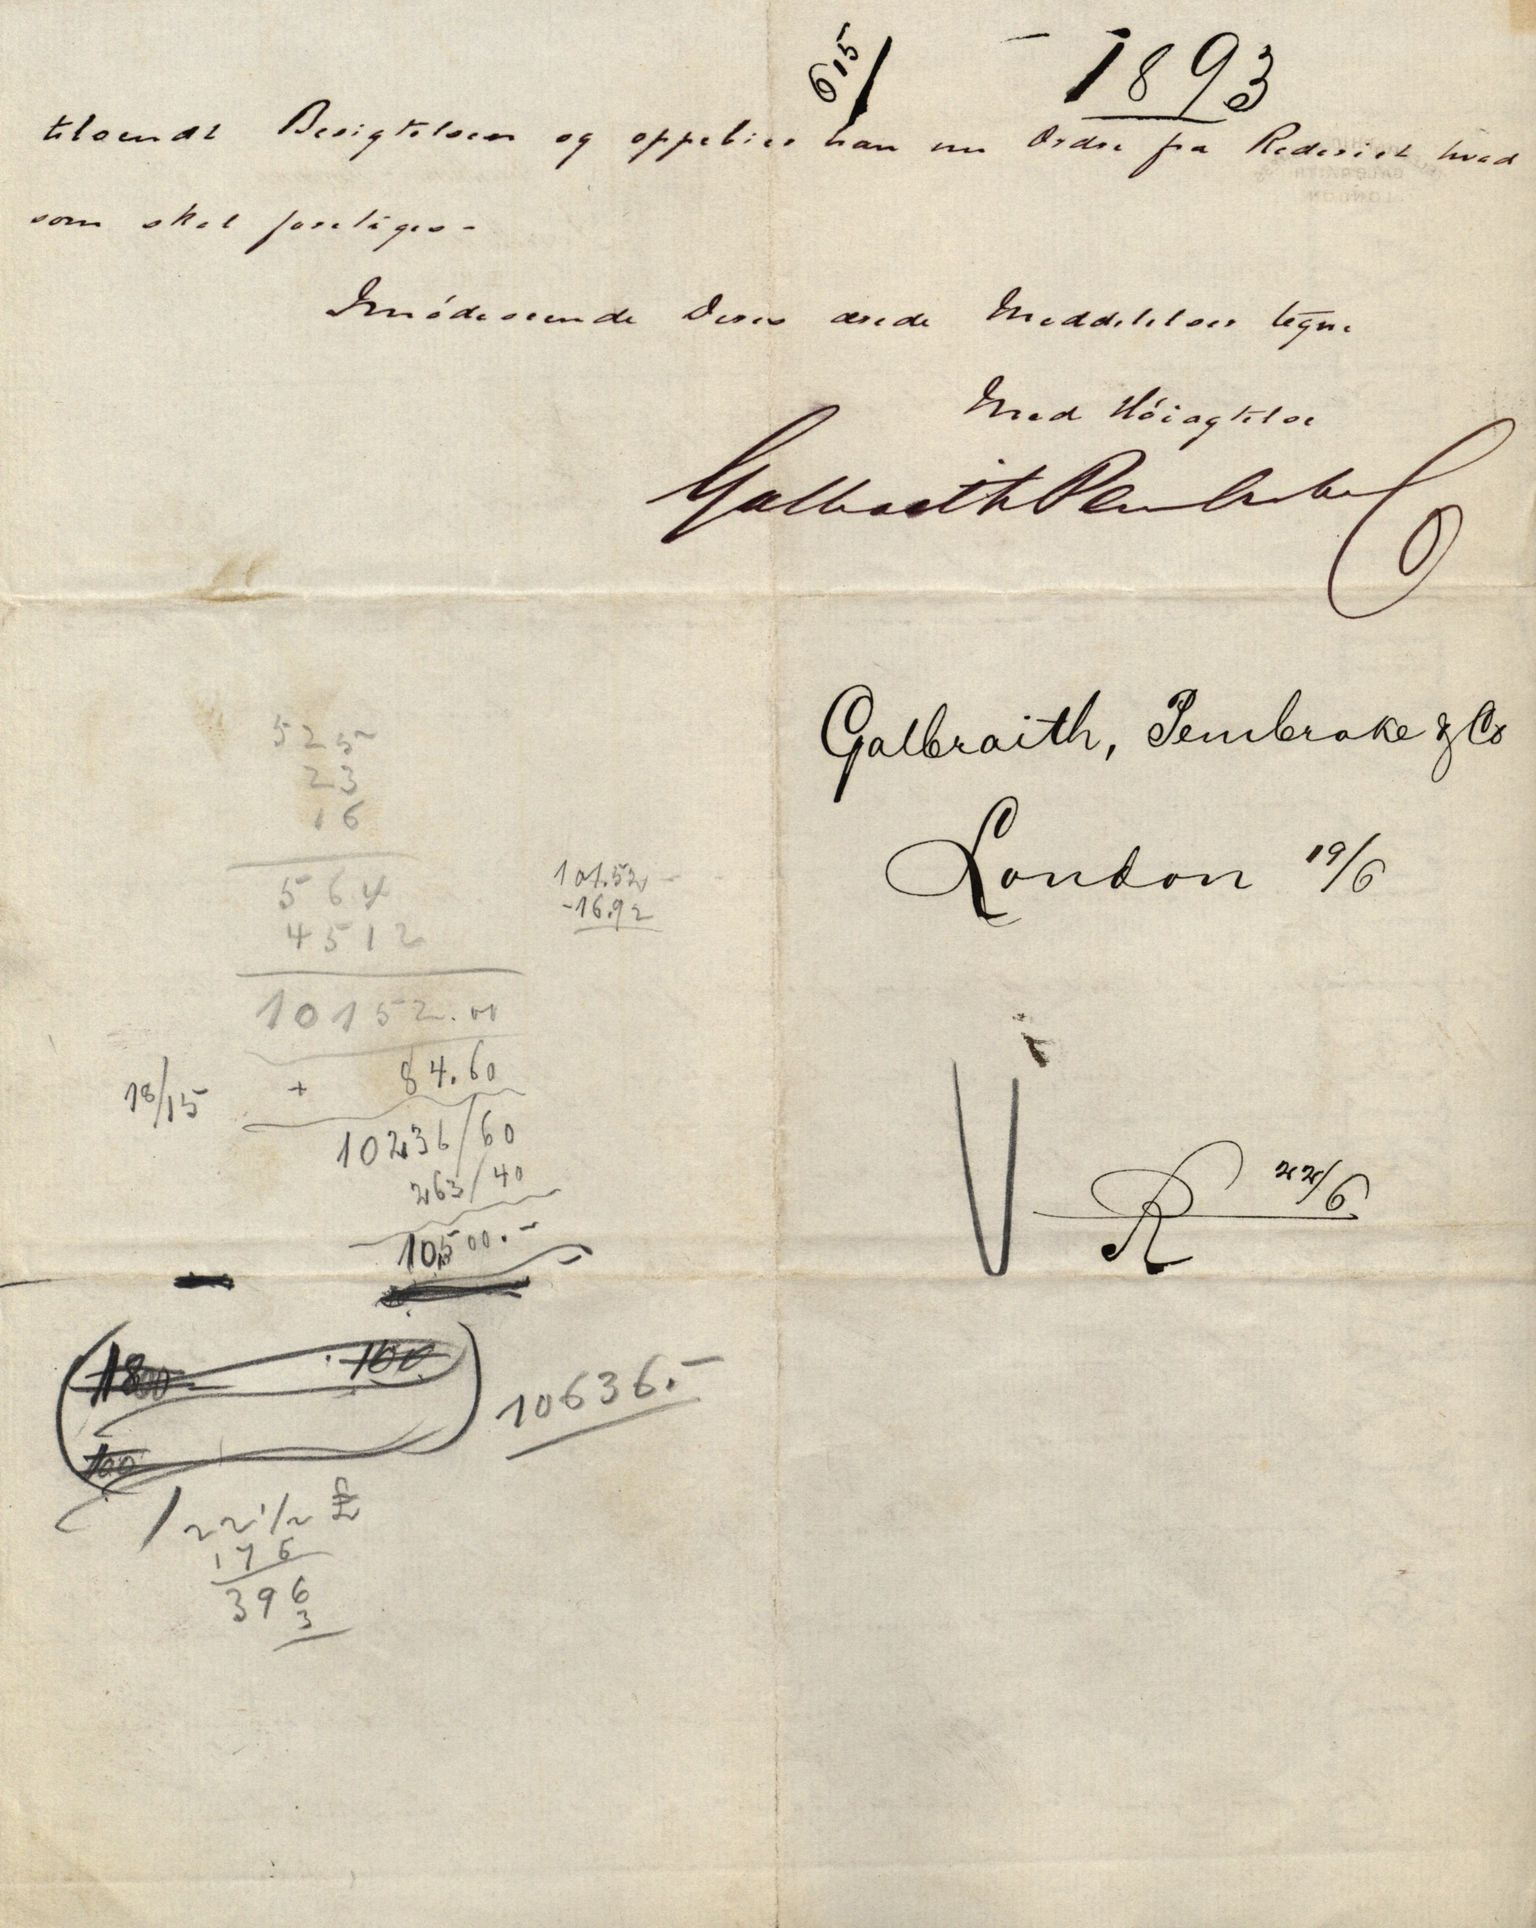 615/ - 1893
tilsendt Besigtelsen og oppebier han nu Ordre fra Rederiet hvad
som skal foretages -
Imødeseende Deres ærede Meddelelser tegne
Med Høiagtelse
Galbraith Pembroke Co
Galbraith, Pembroke & Co
London 19/6
525
23
16
564
4512
101.52
-16.92
10152.00
18/15 + 84.60
10236/60
263/40
10500.-
R 22/6
1800 100
100
10636.-
22 1/2 £
176
396
3